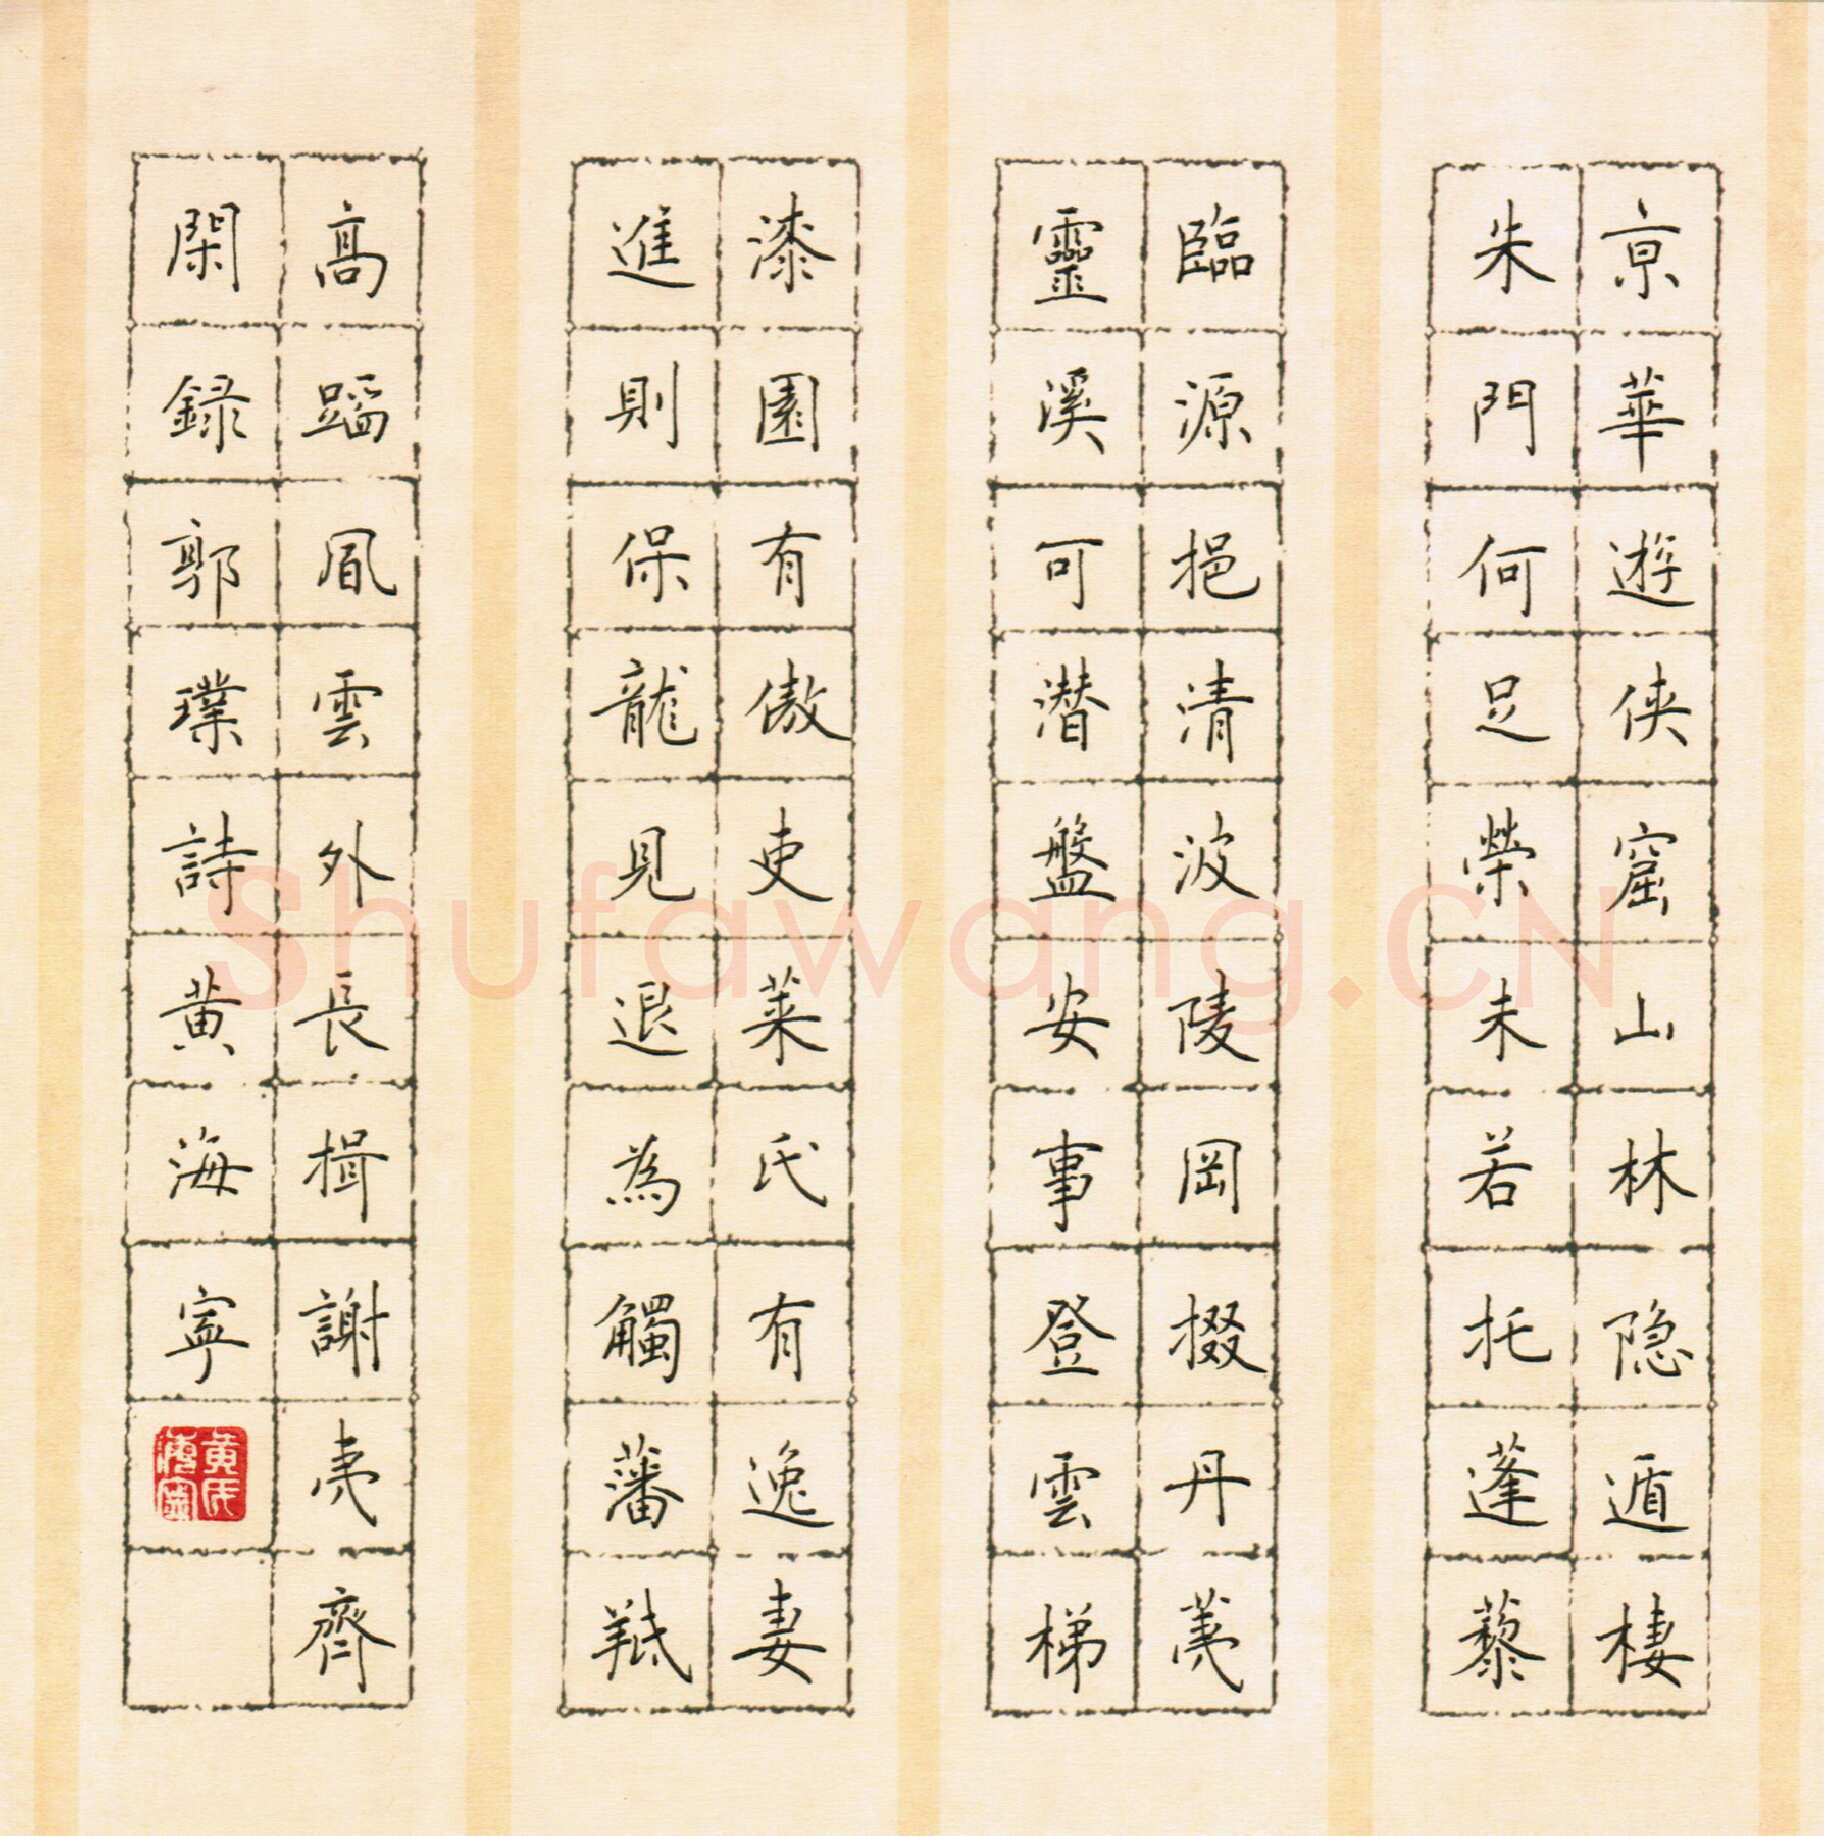 亰華遊侠窟山林隐遁棲
朱門何足榮未若托蓬藜
臨源挹清波陵岡掇丹荑
靈溪可潜盤安事登雲梯
漆園有傲吏莱氏有逸妻
進則保龍見退為觸藩羝
高蹈風雲外長揖謝夷齊
閑録郭璞詩黄海寧
黄氏海寧
Shufawang.CN